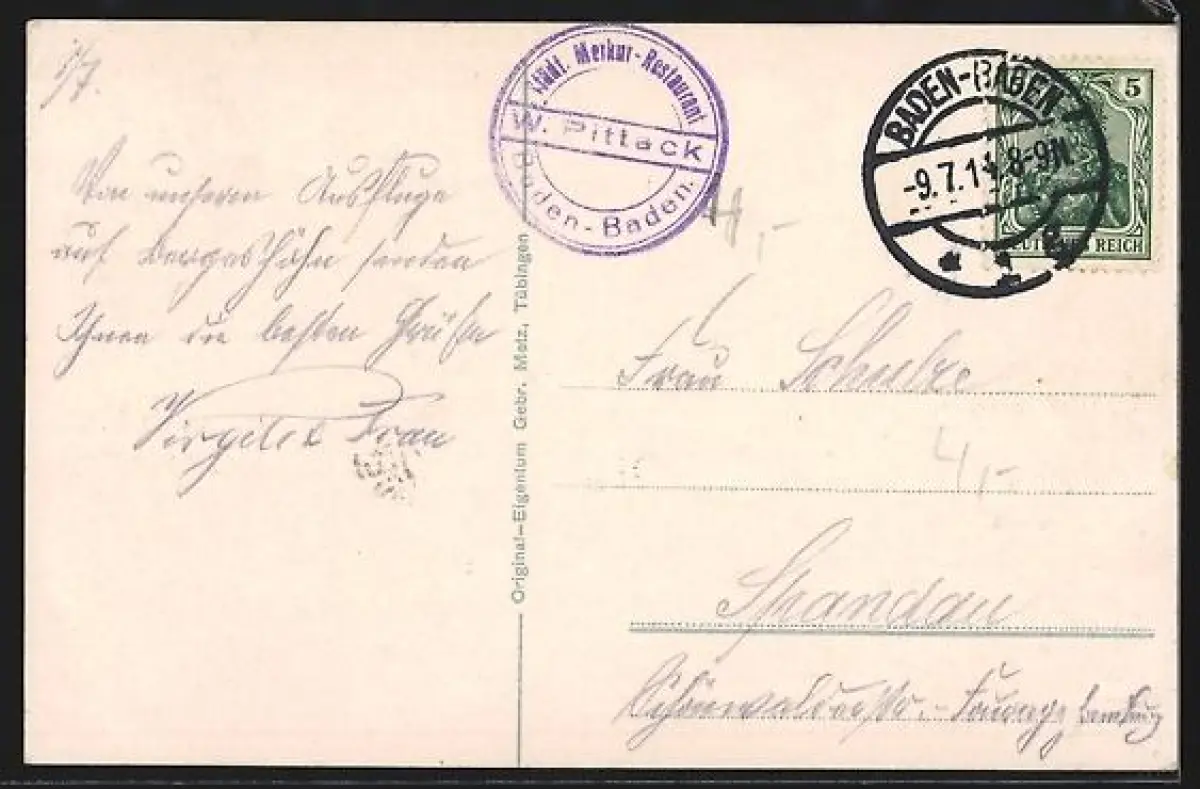 Von unseren Ausfluge
auf Berges Höhn senden
Ihnen die besten Grüße
Frau
Städt. Merkur-Restaurant
W. Pittack
Baden-Baden.
Original-Eigentum Gebr. Metz, Tübingen
BADEN-BADEN
-9.7.14 8-9N.
5
DEUTSCHES REICH
4,-
Frau Schulze
4,-
Spandau
Schönwalderstr.